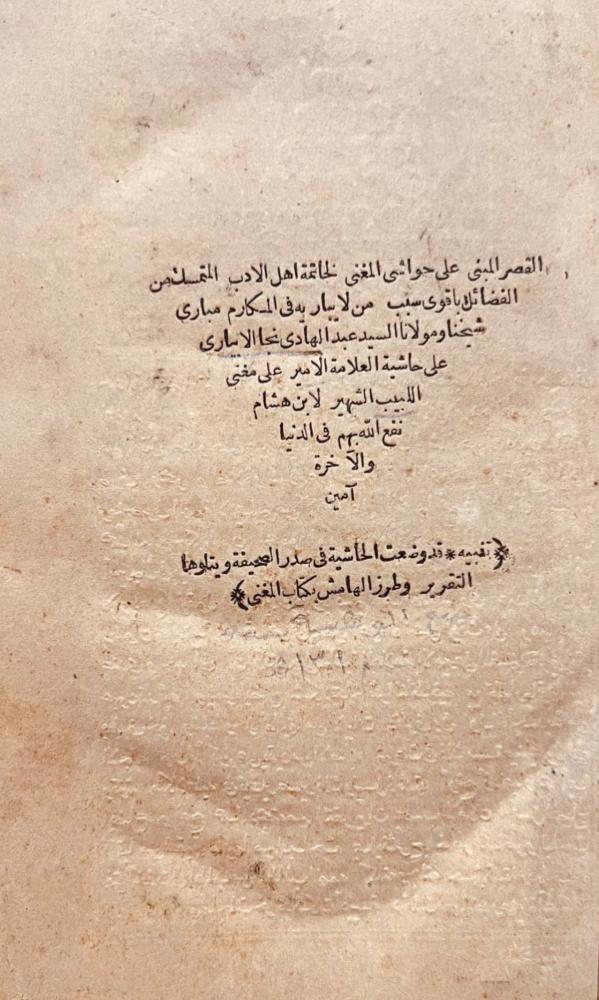 القصر المبنى على حواشى المغنى لخاتمة اهل الادب المتمسك من
الفضائل باقوى سبب من لا يباريه فى المكارم مبارى
شيخنا ومولانا السيد عبد الهادى نجا الابيارى
على حاشية العلامة الامير على مغنى
اللبيب الشهير لابن هشام
نفع الله بهم فى الدنيا
والآخرة
آمين
﴿تنبيه * قد وضعت الحاشية فى صدر الصحيفة ويتلوها
التقرير وطرز الهامش بكتاب المغنى﴾